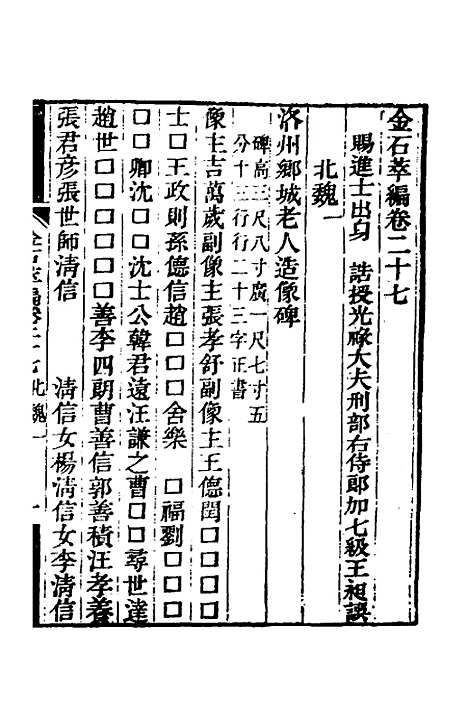 金石萃編卷二十七
賜進士出身 誥授光祿大夫刑部右侍郎加七級王昶譔
北魏一
洛州鄉城老人造像碑
碑高三尺八寸廣一尺七寸五
分十三行行二十三字正書
像主吉萬歲副像主張孝舒副像主王德閏□□□□
士□王政則孫德信趙□□□舍樂 □福劉□□□
□□卿沈□□沈士公韓君遠汪謙之曹□□尋世達
趙世□□□□□□善李四朗曹善信郭善積汪孝養
張君彥張世師清信 清信女楊清信女李清信
金石萃編卷二十七 北魏一 一